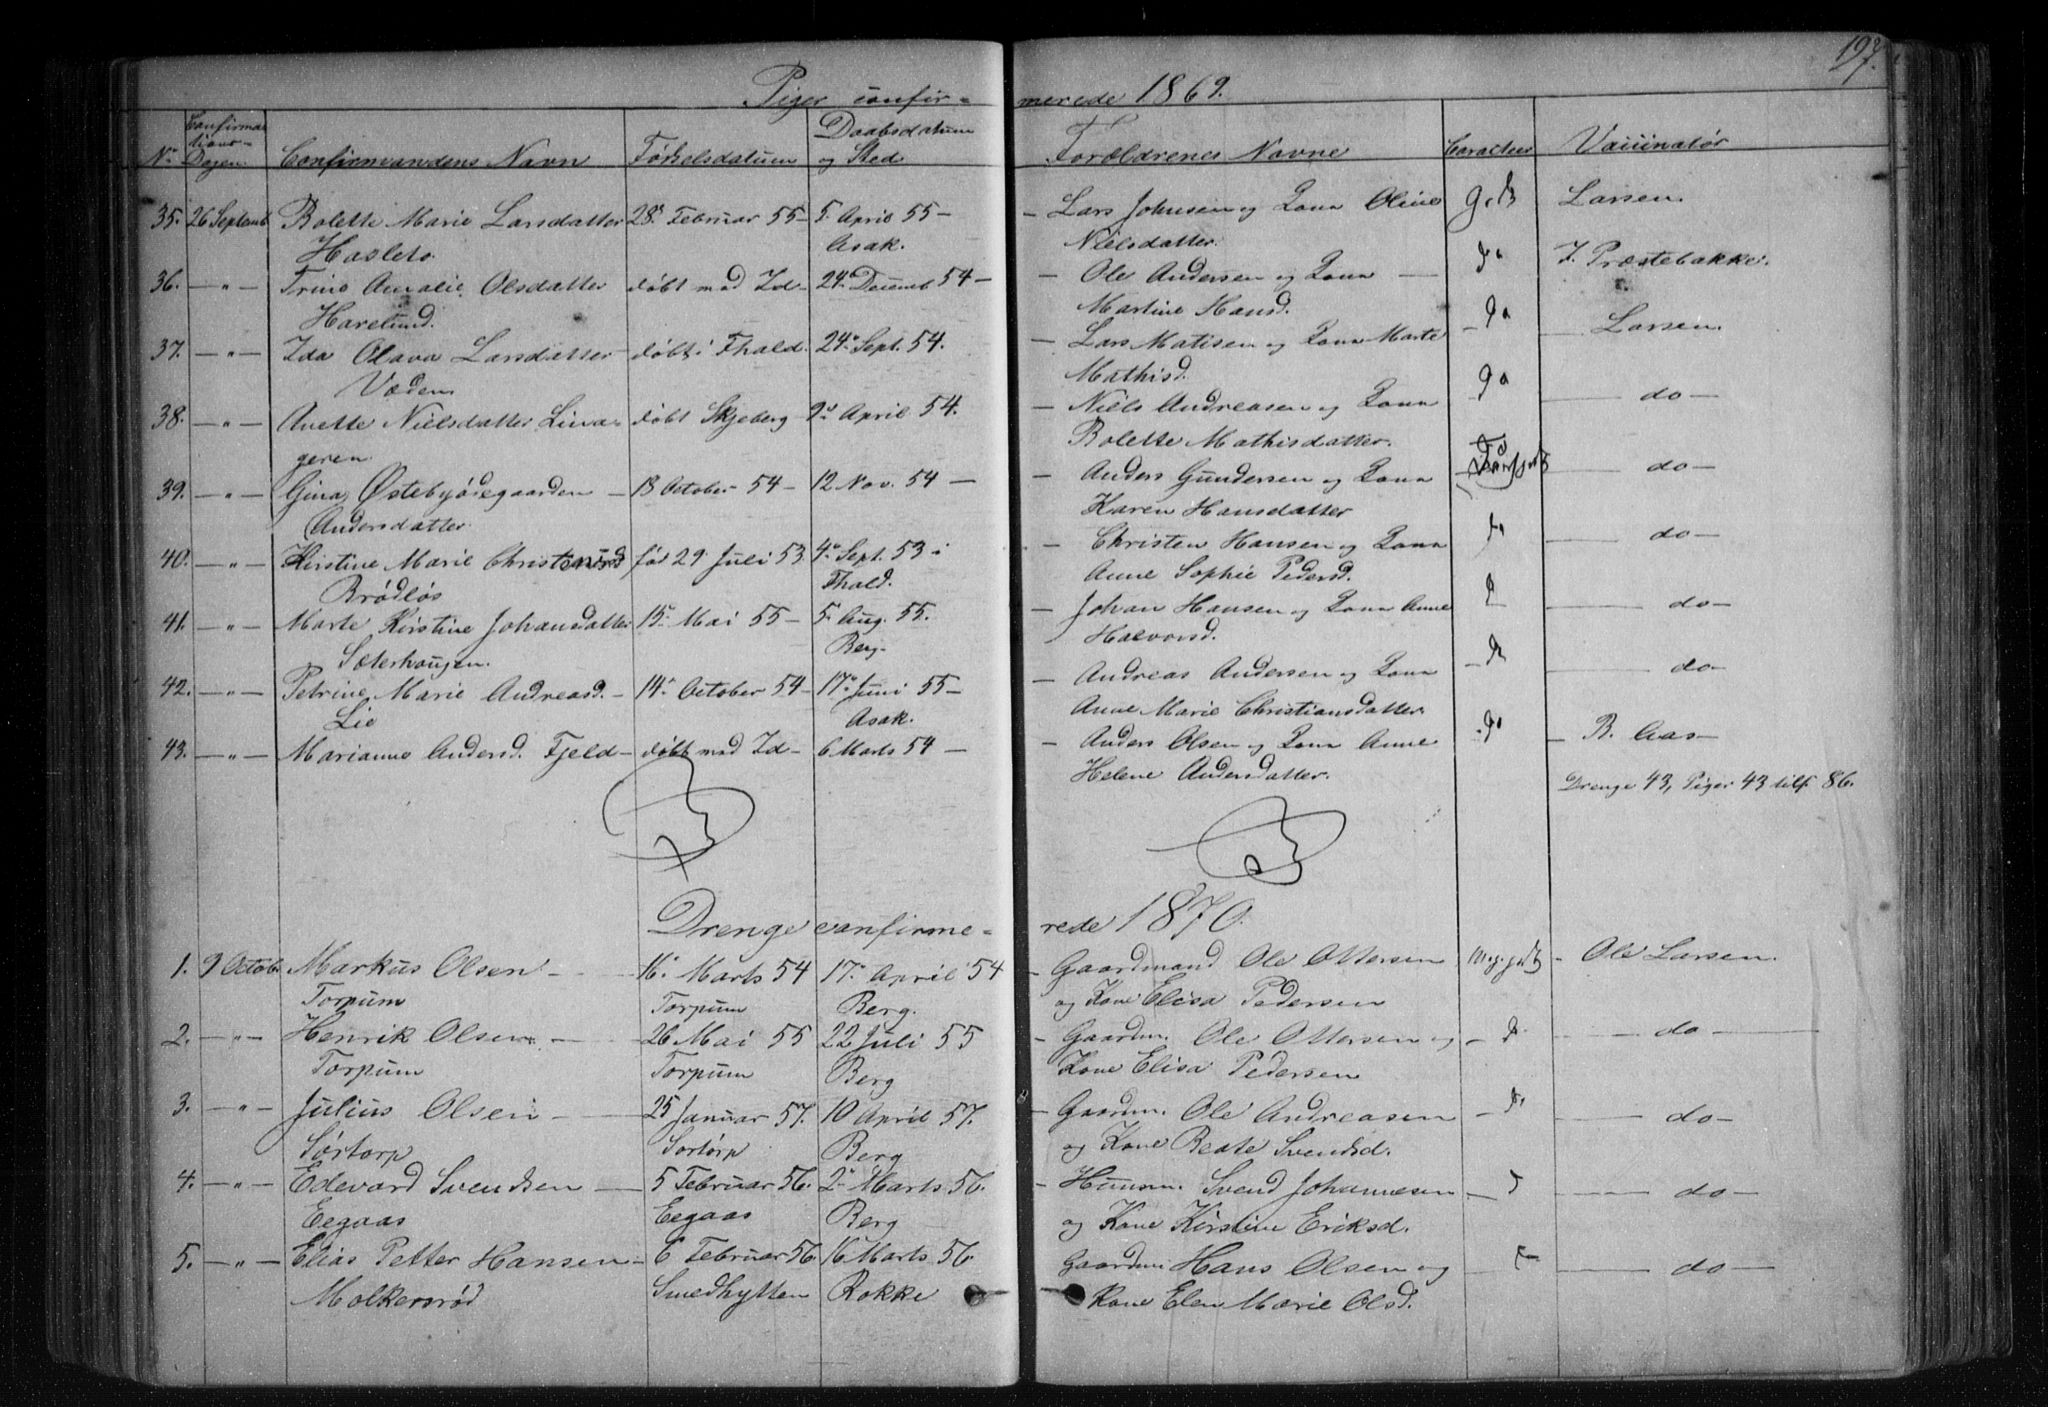 197.
Piger confirmerede 1869.
No Confirmations-Dagen Confirmandens Navn Fødselsdatum Daabsdatum og Sted Forældrenes Navne Caracteer Vaccinatør
35. 26 Septemb Bolette Marie Larsdatter 28de Februar 55 - 5 April 55 - Lars Johnsen og Kona Oline godt Larsen.
Hasleto Asak. Nielsdatter.
36. - " - Trine Amalie Olsdatter døbt mod Id - 24 Decemb. 54 - Ole Andersen og Kona - do I. Præstebakke.
Harelund. Martine Hansd.
37. - " - Ida Olava Larsdatter døbt i Fhald. 24 Sept. 54. - Lars Matisen og Kona Marte - do - Larsen.
Væden Mathisd.
38. - " - Anette Nielsdatter døbt Skjeberg 9de April 54. - Niels Andreasen og Kona do - do -
geren. Bolette Mathisdatter.
39. - " - Gina Østebyødegaarden - 13 October 54 - 12 Nov. 54 - Anders Gundersen og Kona - do -
Andersdatter Karen Hansdatter
40. - " - Kirstine Marie fød 29 Juli 53 4 Sept. 53 i - Christen Hansen og Kona do - do -
Brødløs Fhald. Anne Sophie Pedersd.
41. - " - Marte Kirstine Johansdatter 15 Mai 55 - 5 Aug. 55. - Johan Hansen og Kona Anne - do -
Sæterhaugen. Berg - Halvorsd.
42. - " - Petrine Marie Andreasd. - 14 October 54 - 17 Juni 55 - Andreas Andersen og Kona - do -
Lie Asak. Anne Marie Christiansdatter
43. - " - Marianne Andersd. Fjeld - døbt mod Id - 6 Marts 54 - - Anders Olsen og Kona Anne do - B. Aas -
Helene Andersdatter.
Drenge 43, Piger 43 tils. 86.
Drenge confirmerede 1870.
1. 9 Octob. Markus Olsen - 16 Marts 54 17 April 54 - Gaardmand Ole Ottersen Meg. godt - Ole Larsen.
Torpum Torpum Berg. og Kone Elisa Pedersen
2. - " - Henrik Olsen - 26 Mai 55 22 Juli 55 - Gaardm. Ole Ottersen og - do -
Torpum Torpum Berg Kone Elisa Pedersen
3. - " - Julius Olsen - 25 Januar 57. 10 April 57. - Gaardm. Ole Andreasen - do -
Sørtorp Sortorp Berg og Kone Beate Svendsd.
4. - " - Edevard Svendsen - 5 Februar 56. 2 Marts 56. - Huusm. Svend Johannesen - do -
Eegaas Eegaas Berg og Kone Kirstine Eriksd.
5. - " - Elias Petter Hansen - 6 Februar 56 16 Marts 56 Gaardm. Hans Olsen og - do -
Molkersrød Smedhytten Rokke Kone Elen Marie Olsd.